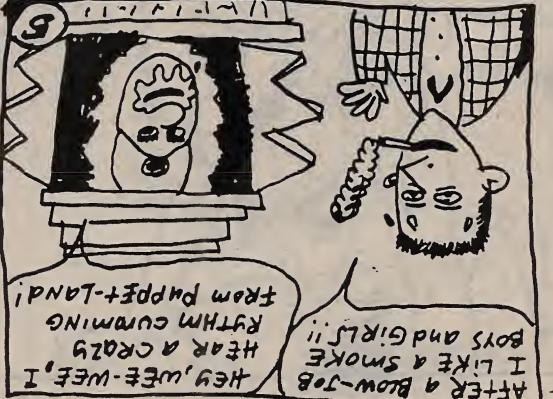 AFTER A BLOW-JOB
I LIKE A SMOKE
BOYS and GIRLS!!
HEY, WEE-WEE, I
HEAR A CRAZY
RYTHM CUMMING
FROM PUPPET-LAND!
5